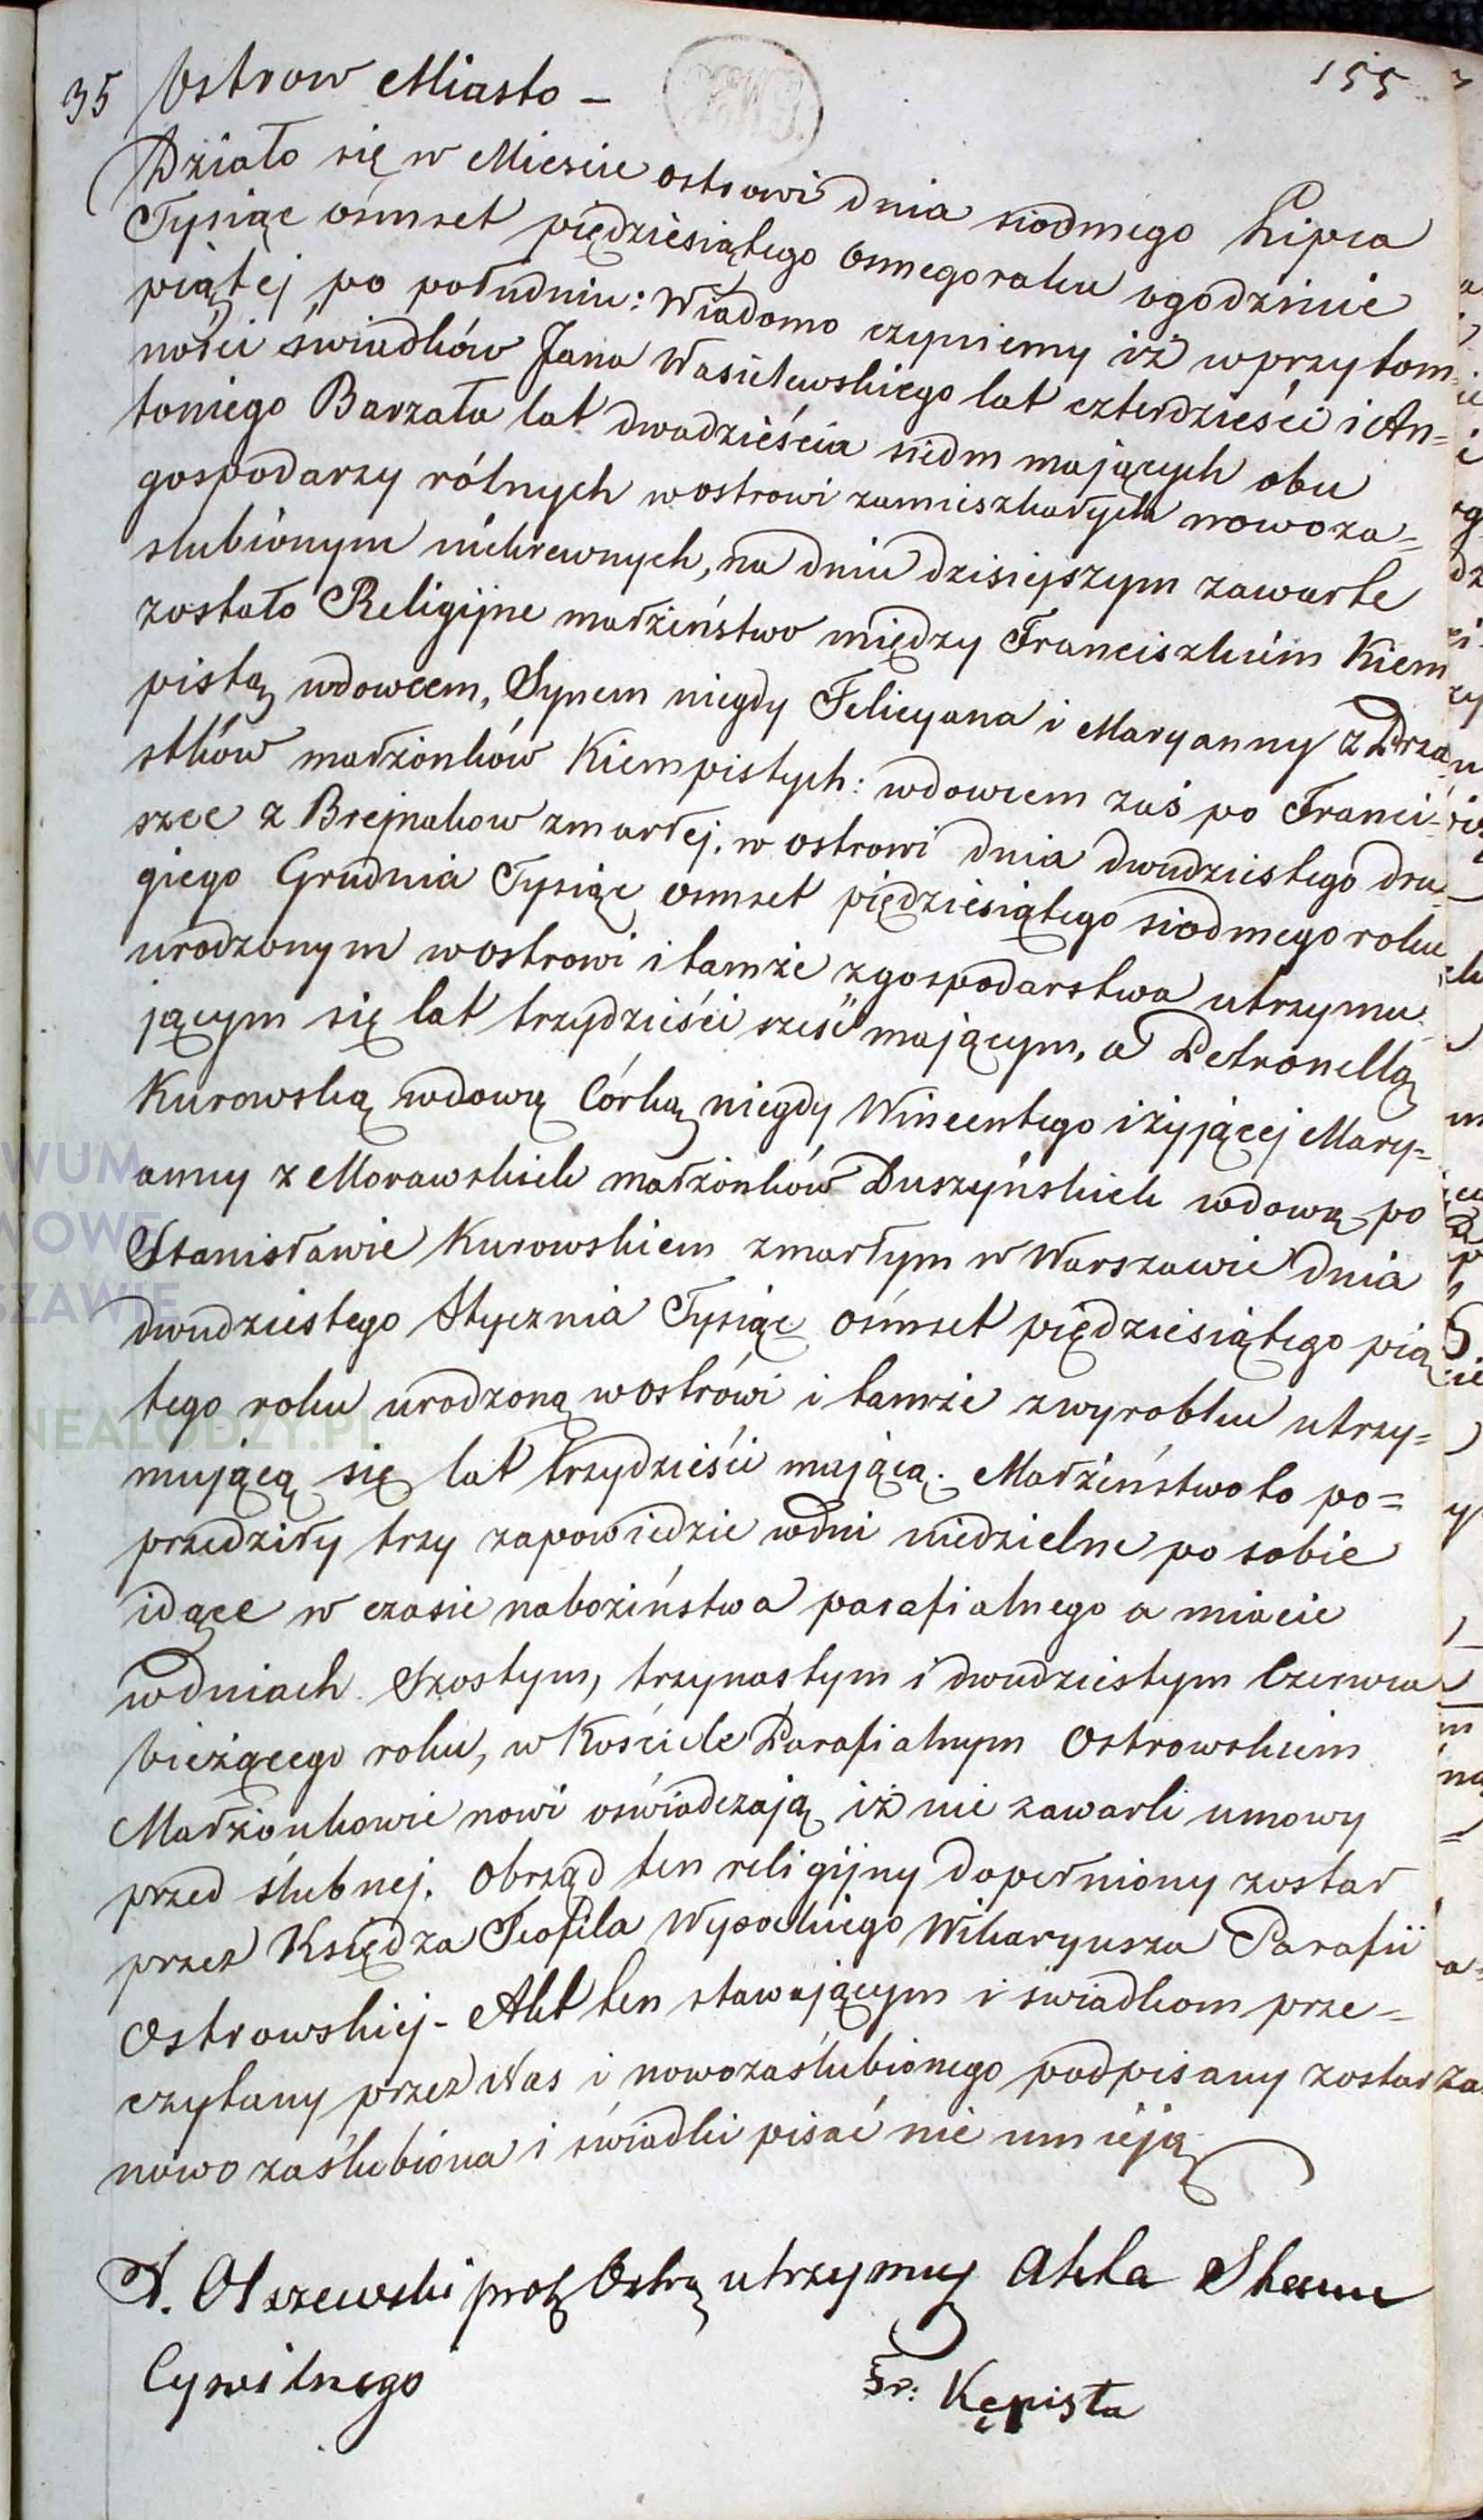 155
35 Ostrow Miasto –
Działo się w Miescie ostrowi dnia siodmego Lipca
Tysiąc osmset pięDziesiątego osmego roku o godzinie
piątej po południu: Wiadomo czyniemy iż w przytom=
ności świadków Jana Wasilewskiego lat czterdzieści i An=
toniego Barzała lat dwadzieścia siedm mających obu
gospodarzy rólnych w ostrowi zamieszkałych nowoza=
slubionym niekrewnych, na dniu dzisiejszym zawarte
zostało Religijne małżeństwo między Franciszkiem Kiem
pistą wdowcem, Synem niegdy Felicyana i Maryanny z Drza
stków małżonków Kiempistych: wdowcem zaś po Franci=
szce z Brejnakow zmarłej w ostrowi dnia dwudziestego dru
giego Grudnia Tysiąc osmset pięDziesiątego siodmego roku
urodzonym w ostrowi i tamże z gospodarstwa utrzymu
jącym się lat trzydzieści sześć mającym, a Petronellą
Kurowską wdową Córką niegdy Wincentego i żyjącej Mary=
anny z Morawskich małżonków Duszyńskich wdową po
Stanisławie Kurowskiem zmarłym w Warszawie dnia
dwudziestego Stycznia Tysiąc ośmset pięDziesiątego pią
tego roku urodzoną w ostrówi i tamże z wyrobku utrzy=
mującą się lat trzydzieści mającą. Małżeństwo to po=
przedziły trzy zapowiedzie w dni niedzielne po sobie
idące w czasie nabożeństwa parafialnego a miacie
w dniach Szostym, trzynastym i dwudziestym Czerwca
bieżącego roku, w Kościele Parafialnym Ostrowskiem
Małżonkowie nowi oświadczają iż nie zawarli umowy
przed ślubnej. Obrząd ten religijny dopełniony został
przez Księdza Teofila Wysockiego Wikaryusza Parafii
Ostrowskiej - Akt ten stawającym i świadkom prze=
czytany przez Nas i nowozaślubionego podpisany został
nowo zaślubiona i świadki pisać nie umieją
A. Olszewski prob Ostrę utrzymuj Akta Stanu
Cywilnego
Fr: Kępista